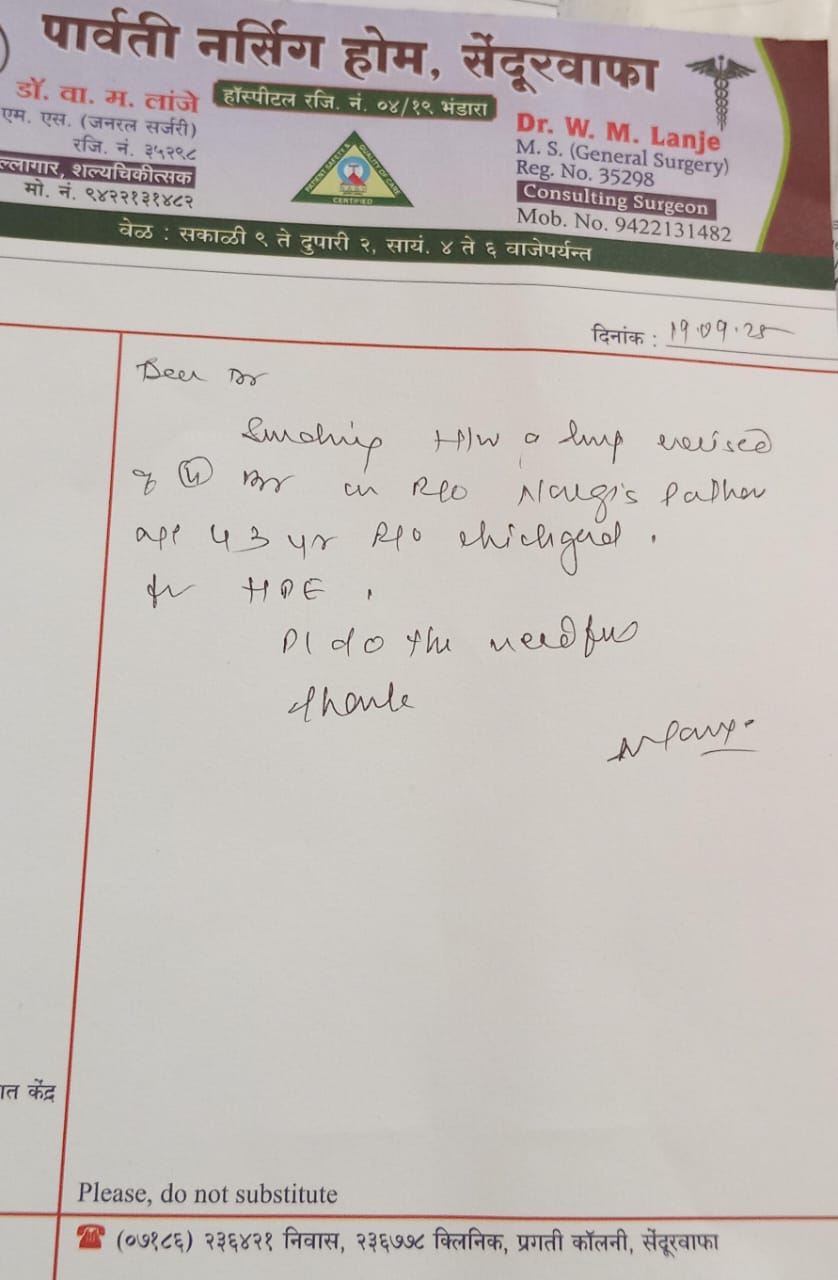 पार्वती नर्सिग होम, सेंदूरवाफा
डॉ. वा. म. लांजे
हॉस्पीटल रजि. नं. ०४/१९ भंडारा
एम. एस. (जनरल सर्जरी)
रजि. नं. ३५२९८
ल्लागार, शल्यचिकीत्सक
मो. नं. ९४२२१३१४८२
PATIENT SAFETY & QUALITY OF CARE
CERTIFIED
Dr. W. M. Lanje
M. S. (General Surgery)
Reg. No. 35298
Consulting Surgeon
Mob. No. 9422131482
वेळ : सकाळी ९ ते दुपारी २, सायं. ४ ते ६ वाजेपर्यन्त
दिनांक : 19.09.25
Dear Dr
Sending H/w a lump excised
of (L) Br in R/o Nargis Pathan
age 43 yr R/o chichgad.
for HPE.
Pl do the needful
thank
ात केंद्र
Please, do not substitute
(०७१८६) २३६४२१ निवास, २३६७७८ क्लिनिक, प्रगती कॉलनी, सेंदूरवाफा